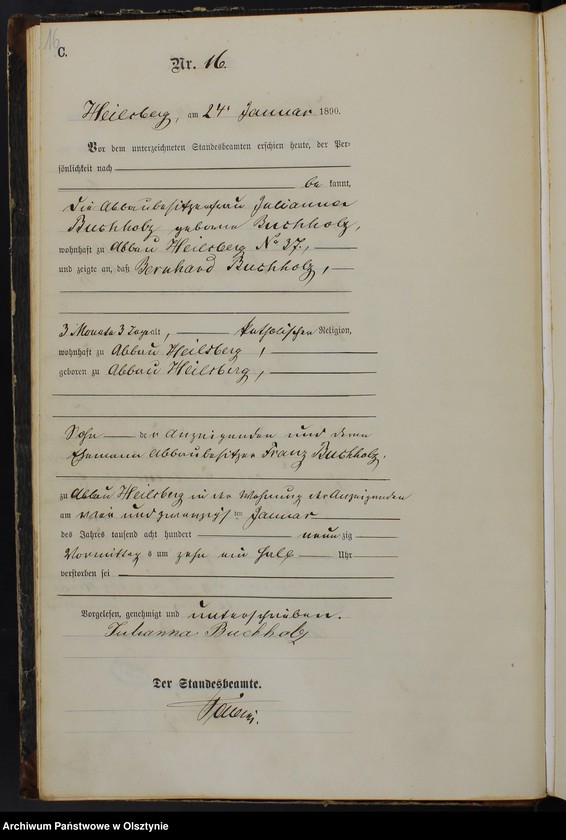 16
C.
Nr. 16.
Heilsberg, am 24 Januar 1890.
Vor dem unterzeichneten Standesbeamten erschien heute, der Per-
sönlichkeit nach
be kannt,
die Abbaubesitzerfrau Julianna
Buchholz geborne Buchholz,
wohnhaft zu Abbau Heilsberg No 37.,
und zeigte an, daß Bernhard Buchholz,
3 Monate 3 Tage alt, katholischer Religion,
wohnhaft zu Abbau Heilsberg,
geboren zu Abbau Heilsberg,
Sohn der Anzeigenden und deren
Ehemann Abbaubesitzer Franz Buchholz.
zu Abbau Heilsberg in der Wohnung der Anzeigenden
am und zwanzigsten Januar
des Jahres tausend acht hundert neun zig
Vormittags um zehn ein halb Uhr
verstorben sei
Vorgelesen, genehmigt und unterschrieben.
Julianna Buchholz
Der Standesbeamte.
Archiwum Państwowe w Olsztynie